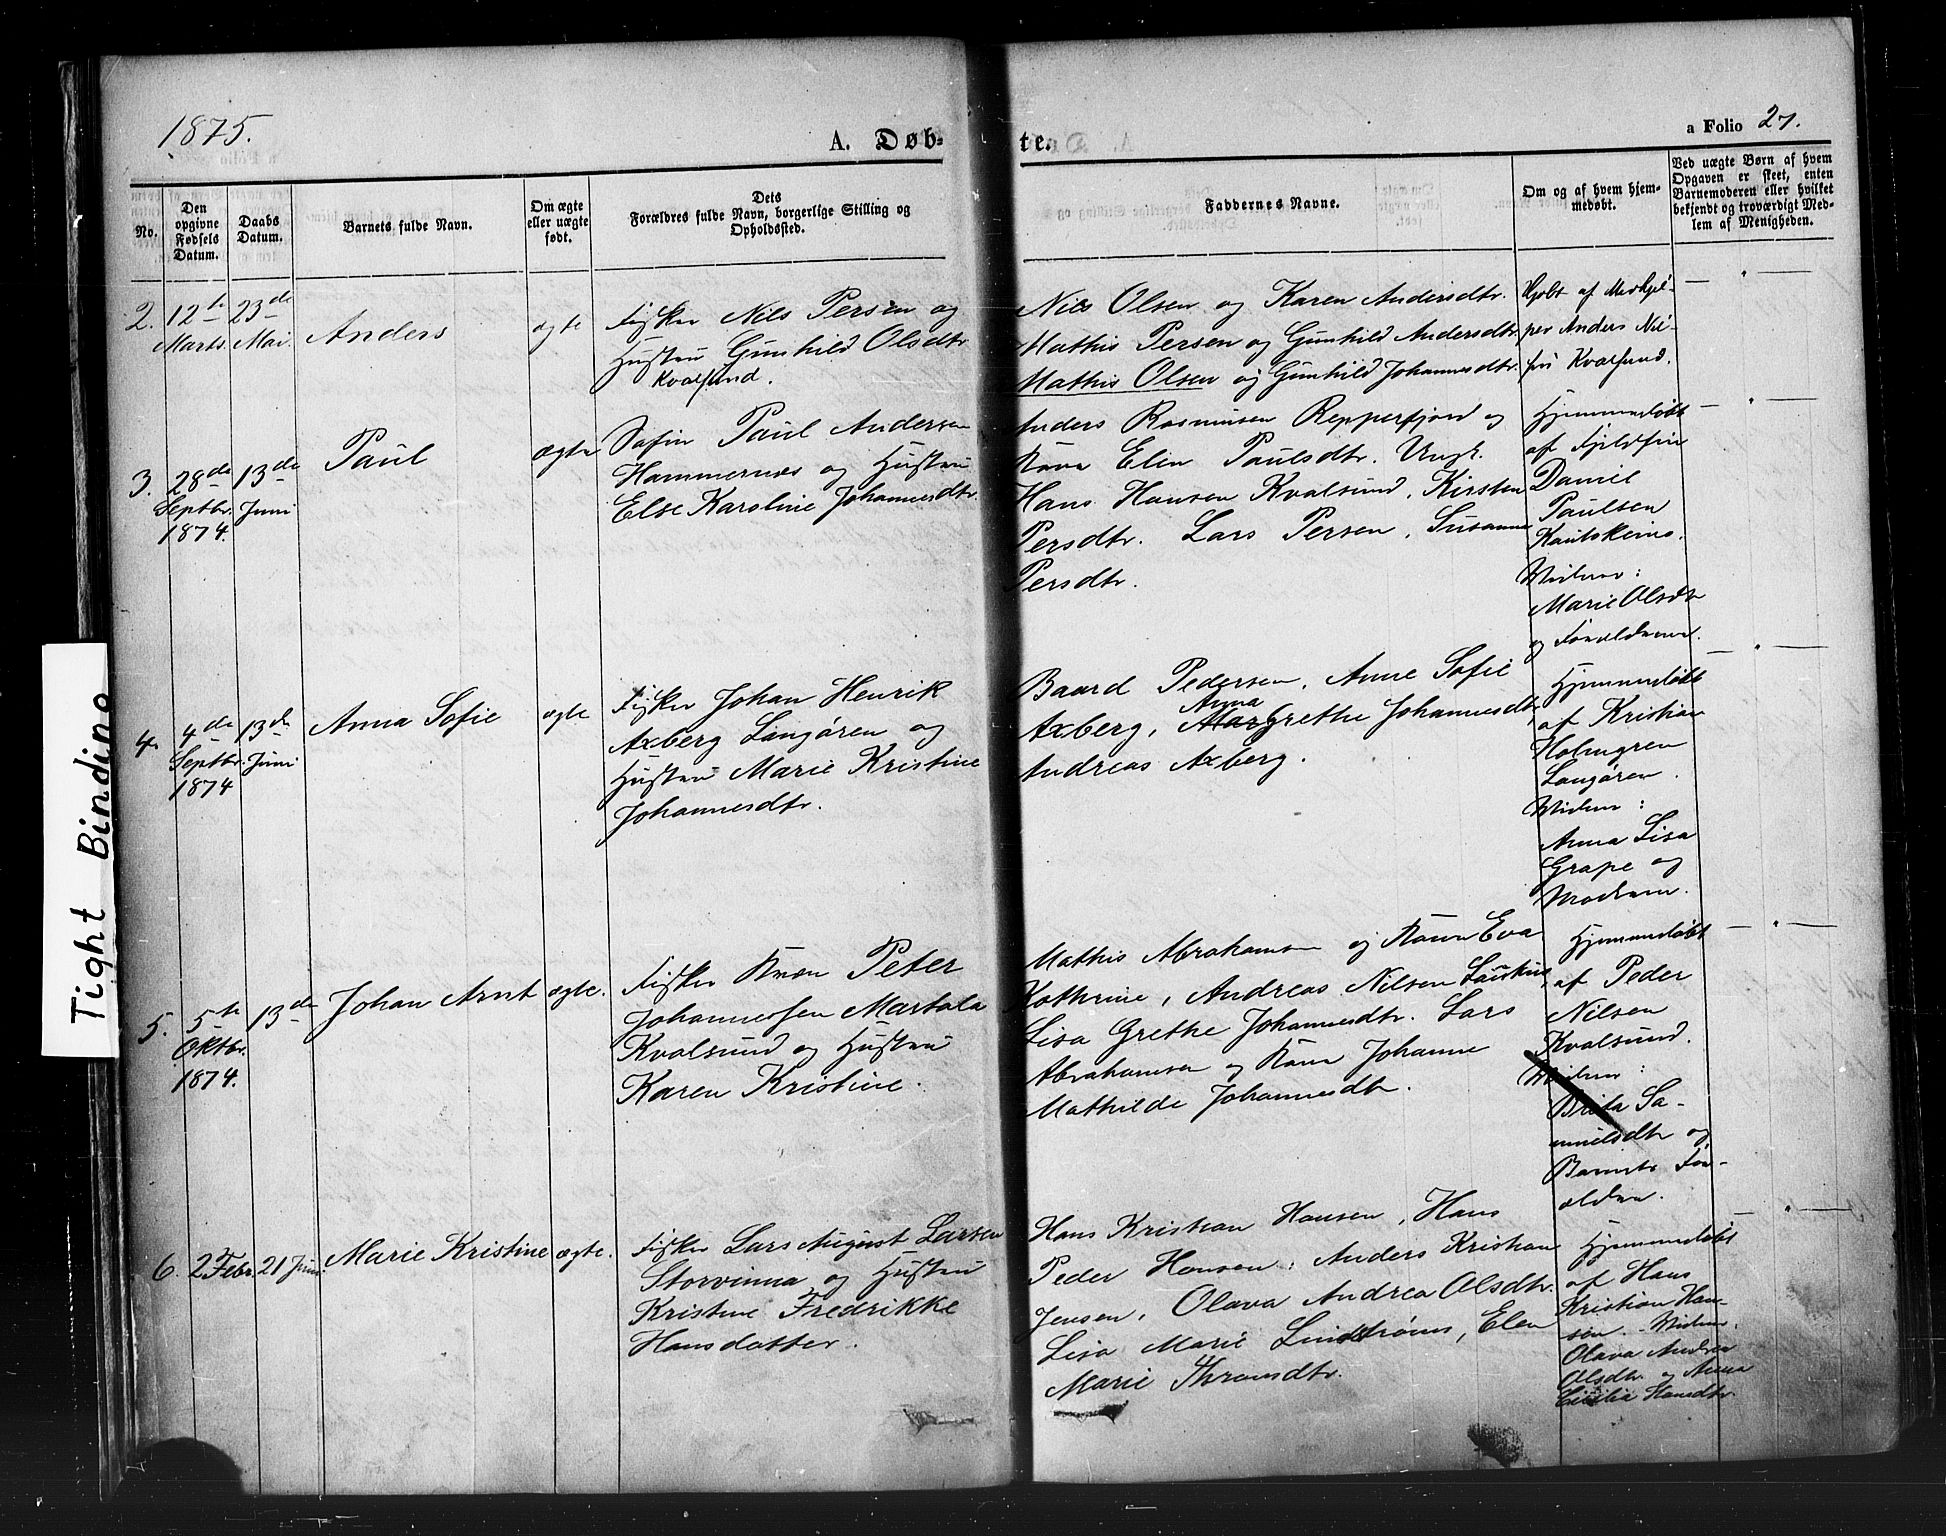 1875.
A. Døb-
te.
a Folio 27.
No.
Den
opgivne
Fødsels
Datum.
Daabs
Datum.
Barnets fulde Navn.
Om ægte
eller uægte
født.
Dets
Forældres fulde Navn, borgerlige Stilling og
Opholdssted.
Faddernes Navne.
Om og af hvem hjem-
medøbt.
Ved uægte Børn af hvem
Opgaven er skeet, enten
Barnemoderen eller hvilket
bekjendt og troværdigt Med-
lem af Menigheden.
2.
12te
Marts.
23de
Mai.
Anders
ægte
Fisker Nils Persen og
Hustru Gunhild Olsdtr
Kvalsund.
Nils Olsen og Karen Andersdtr.
Mathis Persen og Gunhild Andersdtr.
Mathis Olsen og Gunhild Johannesdtr.
Anders
Kvalsund.
3.
28de
Septbr.
1874.
13de
Juni
Paul
ægte
Søfin Paul Andersen
Hammernæs og Hustru
Else Karoline Johannesdtr.
Anders Rasmusen Repperfjord og
Kone Elen Paulsdtr. Ungk.
Hans Hansen Kvalsund, Kirsten
Persdtr. Lars Persen, Susanne
Persdtr.
Hjemmedøbt
af Fjeldfin
Daniel
Paulsen
Kautokeino.
Vidner:
Marie Olsdtr
og Forældrene.
4.
4de
Septbr.
1874
13de
Juni
Anna Sofie
ægte
Fisker Johan Henrik
Axberg Langøren og
Hustru Marie Kristine
Johannesdtr.
Baard Pedersen, Anne Sofie
Anna
Axberg, Grethe Johannesdtr,
Andreas Axberg.
Hjemmedøbt
af Kristian
Holmgren
Langøren.
Vidner:
Anna Lisa
Grape og
Moderen.
5.
5te
Oktbr.
1874.
13de
Johan Arnt
ægte.
Fisker Kvæn Peter
Johannessen Martala
Kvalsund og Hustru
Karen Kristine.
Mathis Abrahamsen og Kone Eva
Kathrine, Andreas Nilsen
Lisa Grethe Johannesdtr. Lars
Abrahamsen og Kone Johanne
Mathilde Johannesdtr.
Hjemmedøbt
af Peder
Nilsen
Kvalsund.
Vidner:
Brita Sa-
muelsdtr og
Barnets For-
ældre.
6.
2 Febr.
21 Juni.
Marie Kristine
ægte.
Fisker Lars August Larsen
Storvinna og Hustru
Kristine Fredrikke
Hansdatter.
Hans Kristian Hansen, Hans
Peder Hansen, Anders Kristian
Jensen, Olava Andrea Olsdtr.
Lisa Marie Lindstrøms, Elen
Marie Thramsdtr.
Hjemmedøbt
af Hans
Kristian Han-
sen. Vidner.
Olava Andrea
Olsdtr. og Anna
Cicilia Hansdtr.
Tight Binding